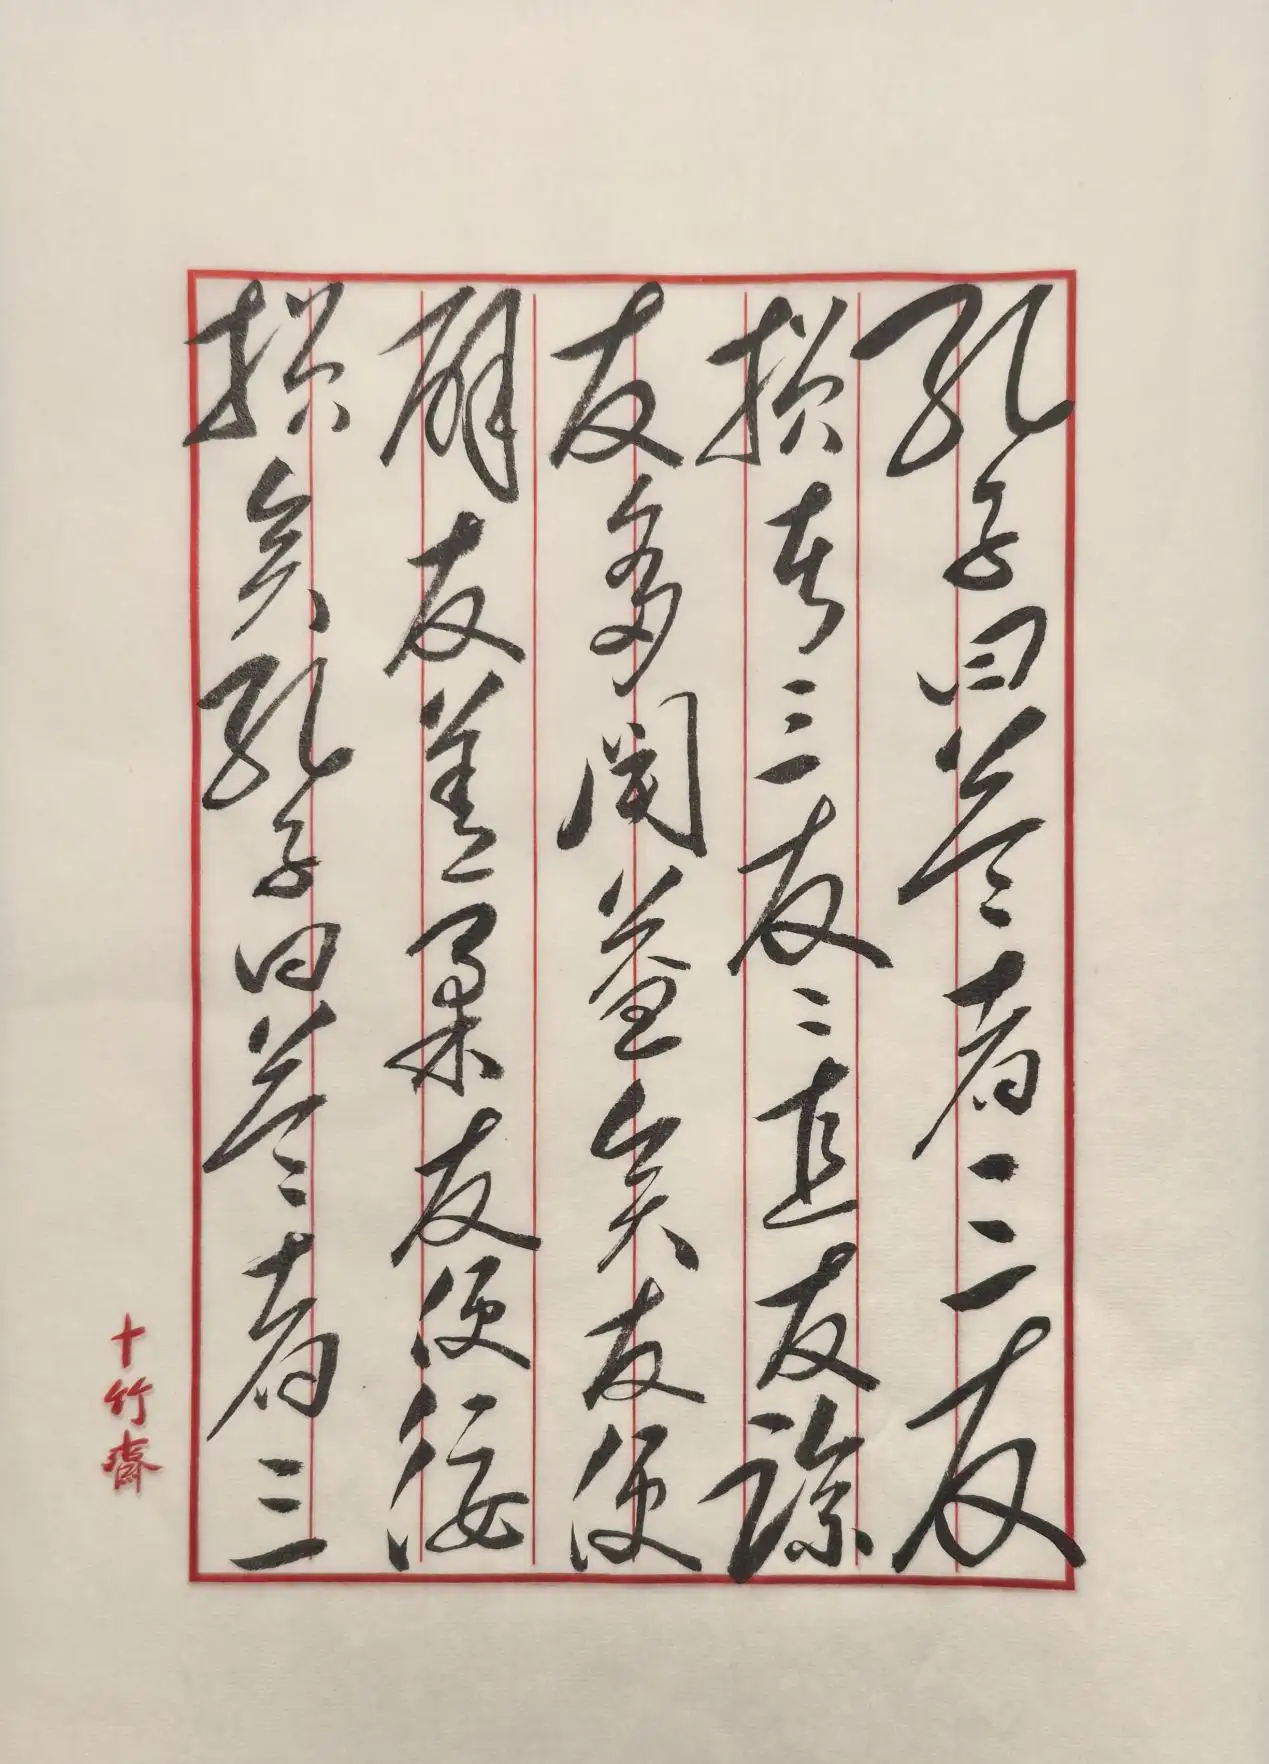 孔子曰益者三友
損者三友友直友諒
友多聞益矣友便
辟友善柔友便佞
損矣孔子曰益者三
十竹齋